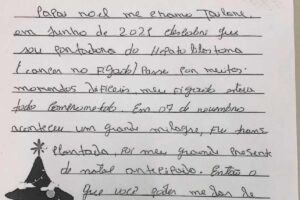 Papai noel me chamo Taylane,
em Junho de 2021 descobri que
sou portadora do Hepatoblastoma
(cancer no Figado) Passei por muitos
momentos dificeis, meu Figado estava
todo Comprometido. Em 07 de novembro
aconteceu um grande milagre, Fui trans
plantada, foi meu grande presente
de natal antecipado. Então o
que você poder me dar de